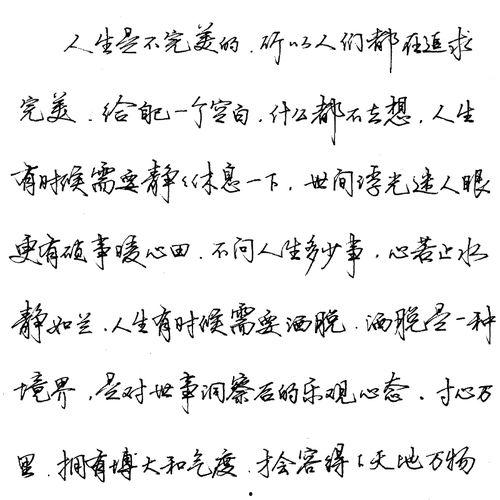 人生是不完美的.所以人们都在追求
完美.给自己一个空白.什么都不去想.人生
有时候需要静静休息一下.世间浮光迷人眼
更有琐事暖心田.不问人生多少事.心若止水
静如兰.人生有时候需要洒脱.洒脱是一种
境界.是对世事洞察后的乐观心态.寸心万
里.拥有博大和气度.才会容得了天地万物